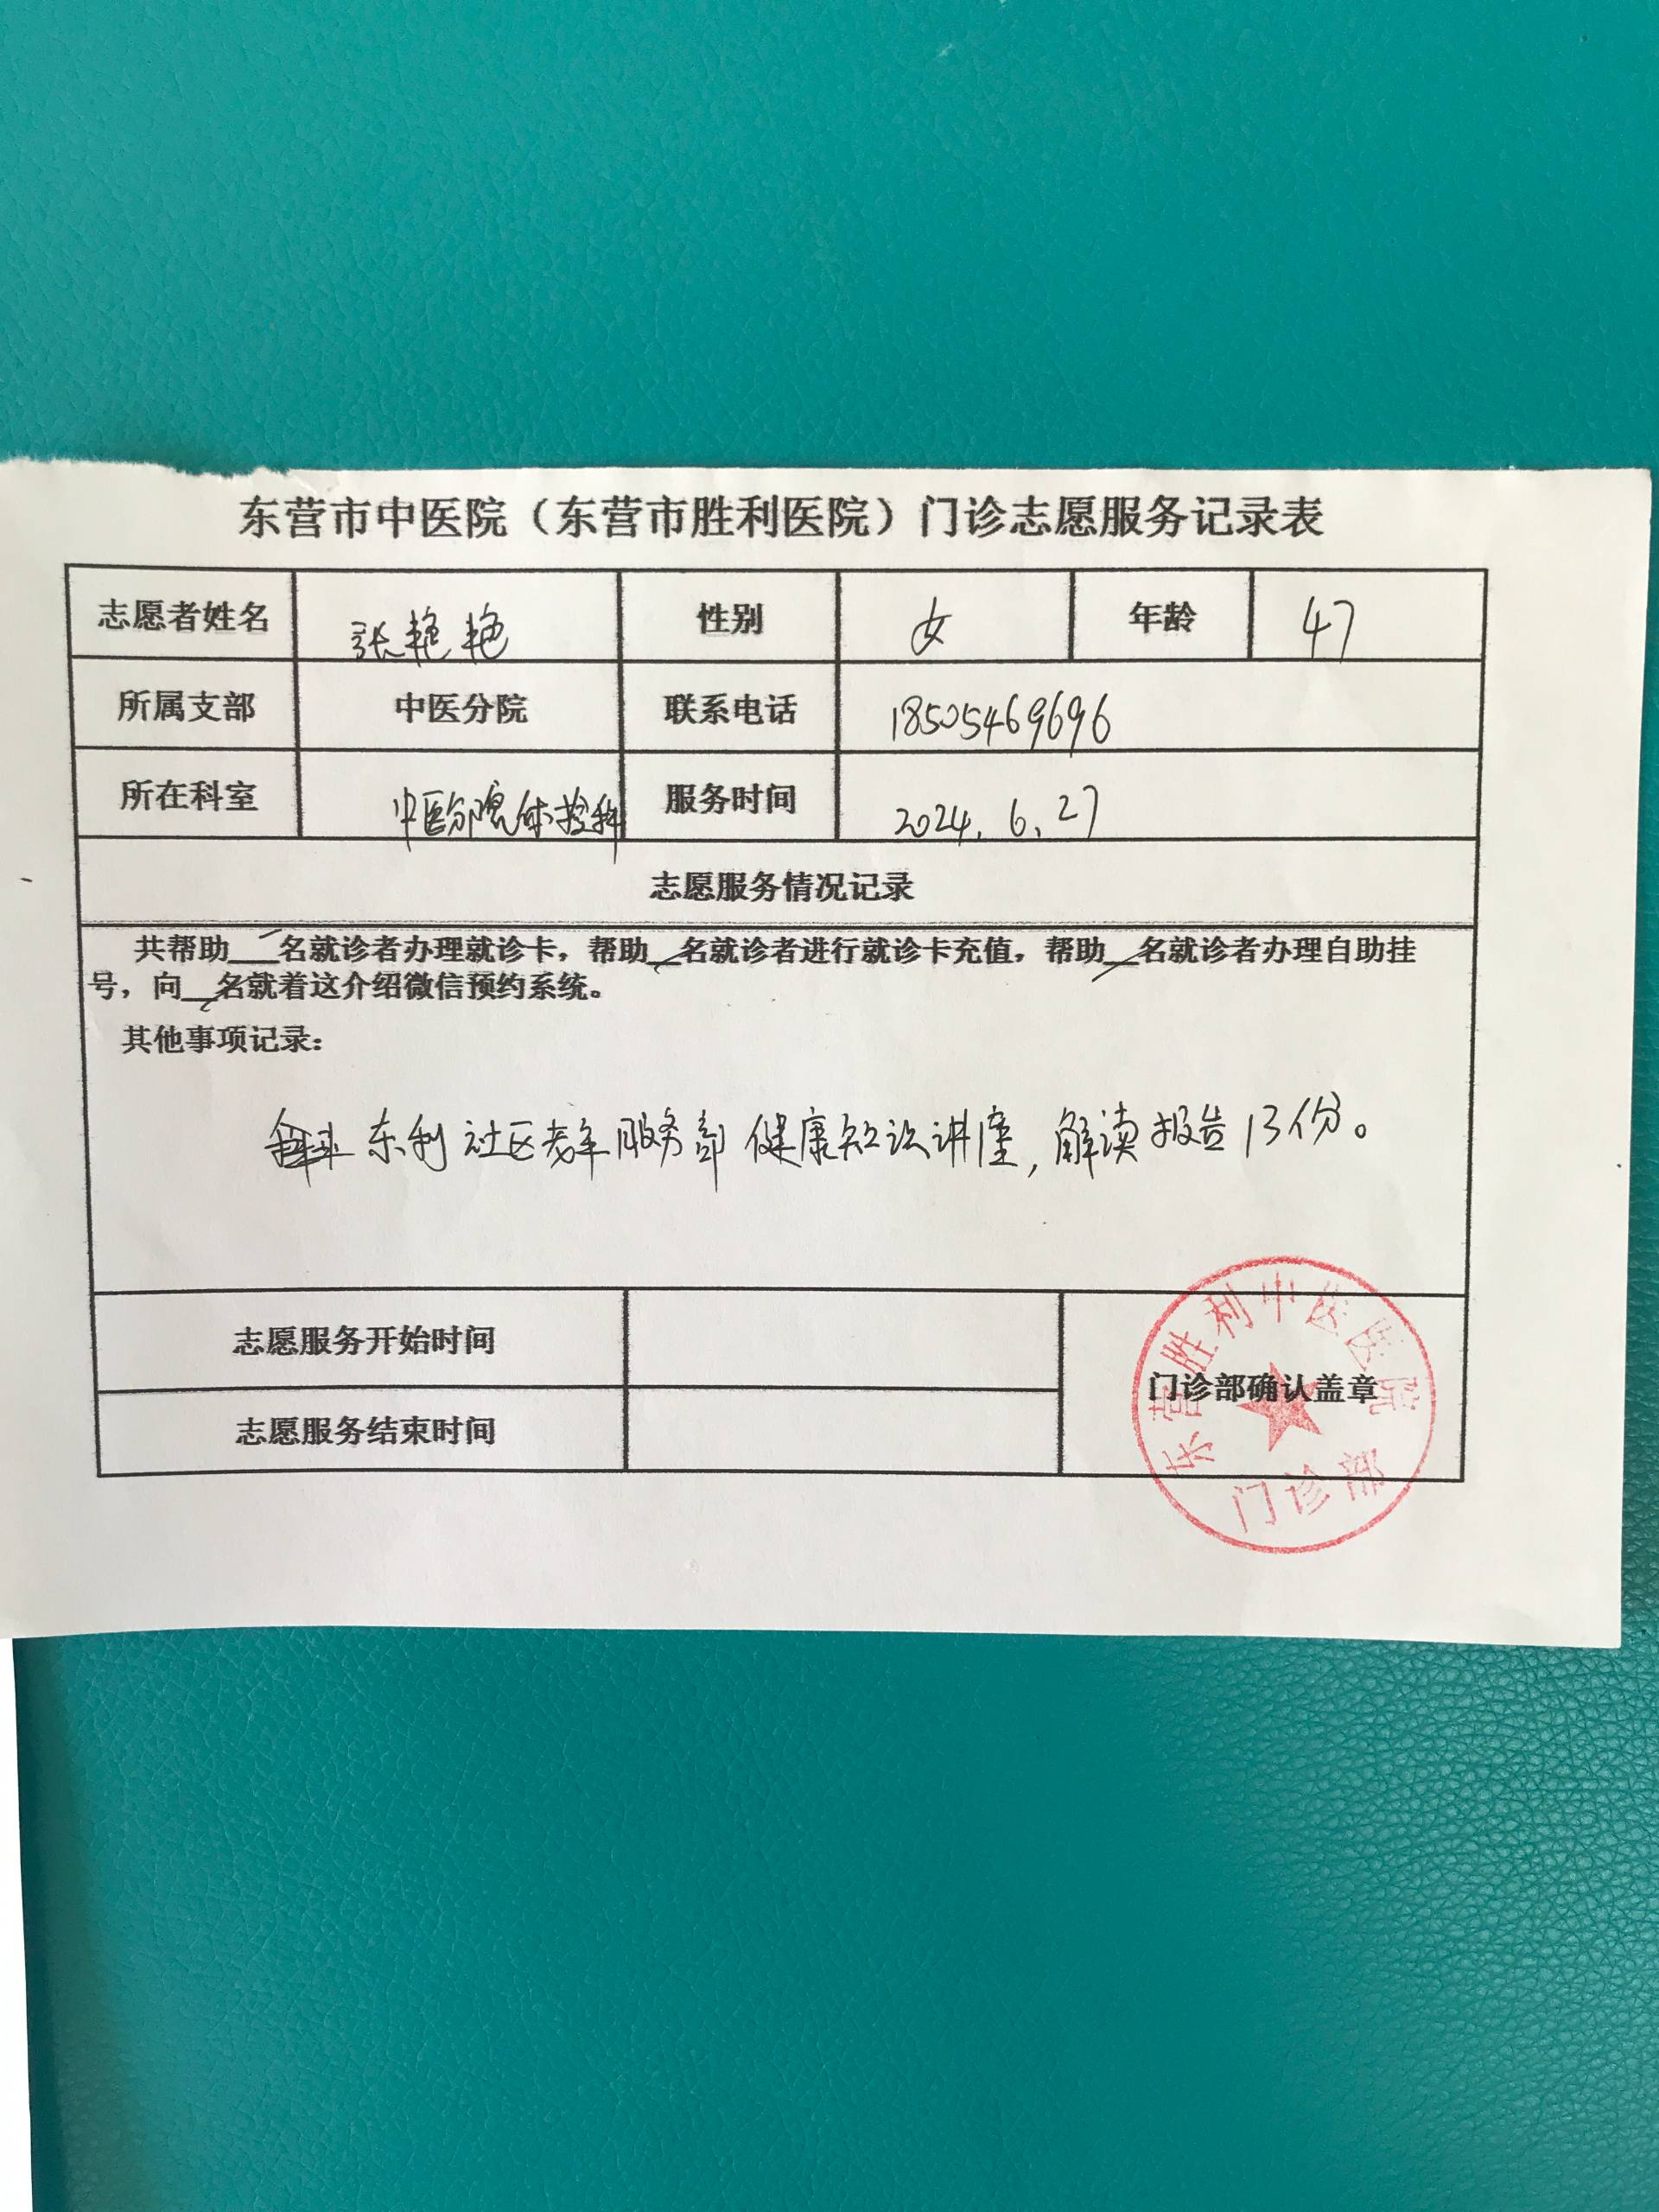 东营市中医院（东营市胜利医院）门诊志愿服务记录表
志愿者姓名 张艳艳 性别 女 年龄 47
所属支部 中医分院 联系电话 18505469696
所在科室 中医分院体检科 服务时间 2024.6.27
志愿服务情况记录
共帮助___名就诊者办理就诊卡，帮助__名就诊者进行就诊卡充值，帮助__名就诊者办理自助挂
号，向__名就着这介绍微信预约系统。
其他事项记录：
东利社区老年服务部健康知识讲座，解读报告13份。
志愿服务开始时间
门诊部确认盖章
志愿服务结束时间
东营胜利中医医院
门诊部